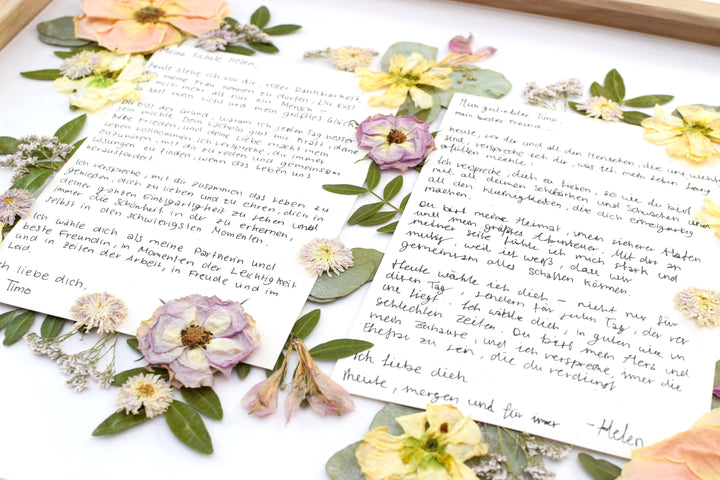 Meine liebste Helen,
heute stehe ich vor dir, voller Dankbarkeit,
meine Frau nennen zu dürfen. Du bist
mich mehr als nur ein Mensch –
bist mein Licht und mein größtes Glück
Du bist der Grund, warum ich jeden Tag besser
möchte. Dein Lächeln gibt mir Kraft, deine
Nähe Frieden, und deine Liebe macht mein
Leben vollkommen. Ich verspreche dir, immer
zuzuhören, mit dir zu reden und gemeinsam
Lösungen zu finden, wenn das Leben uns
herausfordert.
Ich verspreche, mit dir zusammen das Leben zu
genießen, dich zu lieben und zu ehren, dich in
deiner ganzen Einzigartigkeit zu sehen und
immer die Schönheit in dir zu erkennen,
selbst in den schwierigsten Momenten.
Ich wähle dich als meine Partnerin und
beste Freundin, in Momenten der Leichtigkeit
und in Zeiten der Arbeit, in Freude und im
Leid.
Ich liebe dich,
Timo
Mein geliebter Timo,
mein bester Freund –
heute, vor dir und all den Menschen, die uns wichtig
sind, verspreche ich dir, was ich mein Leben lang
erfüllen möchte.
Ich verspreche, dich zu lieben, so wie du bist
mit all deinen Schwächen und
all den Kleinigkeiten, die dich einzigartig
machen.
Du bist meine Heimat, mein sicherer Hafen
und mein größtes Abenteuer. Mit dir an
meiner Seite fühle ich mich stark und
mutig, weil ich weiß, dass wir
gemeinsam alles schaffen können.
Heute wähle ich dich – nicht nur für
diesen Tag, sondern für jeden Tag, der vor
uns liegt. Ich wähle dich, in guten wie in
schlechten Zeiten. Du bist mein Herz und
mein Zuhause, und ich verspreche, immer die
Ehefrau zu sein, die du verdienst.
Ich liebe dich
heute, morgen und für immer – Helen